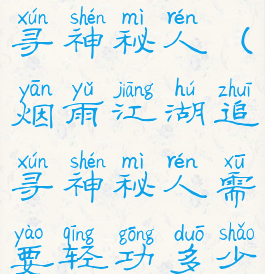 xún shén mì rén
寻神秘人（
yān yǔ jiāng hú zhuī
烟雨江湖追
xún shén mì rén xū
寻神秘人需
yào qīng gōng duō shǎo
要轻功多少